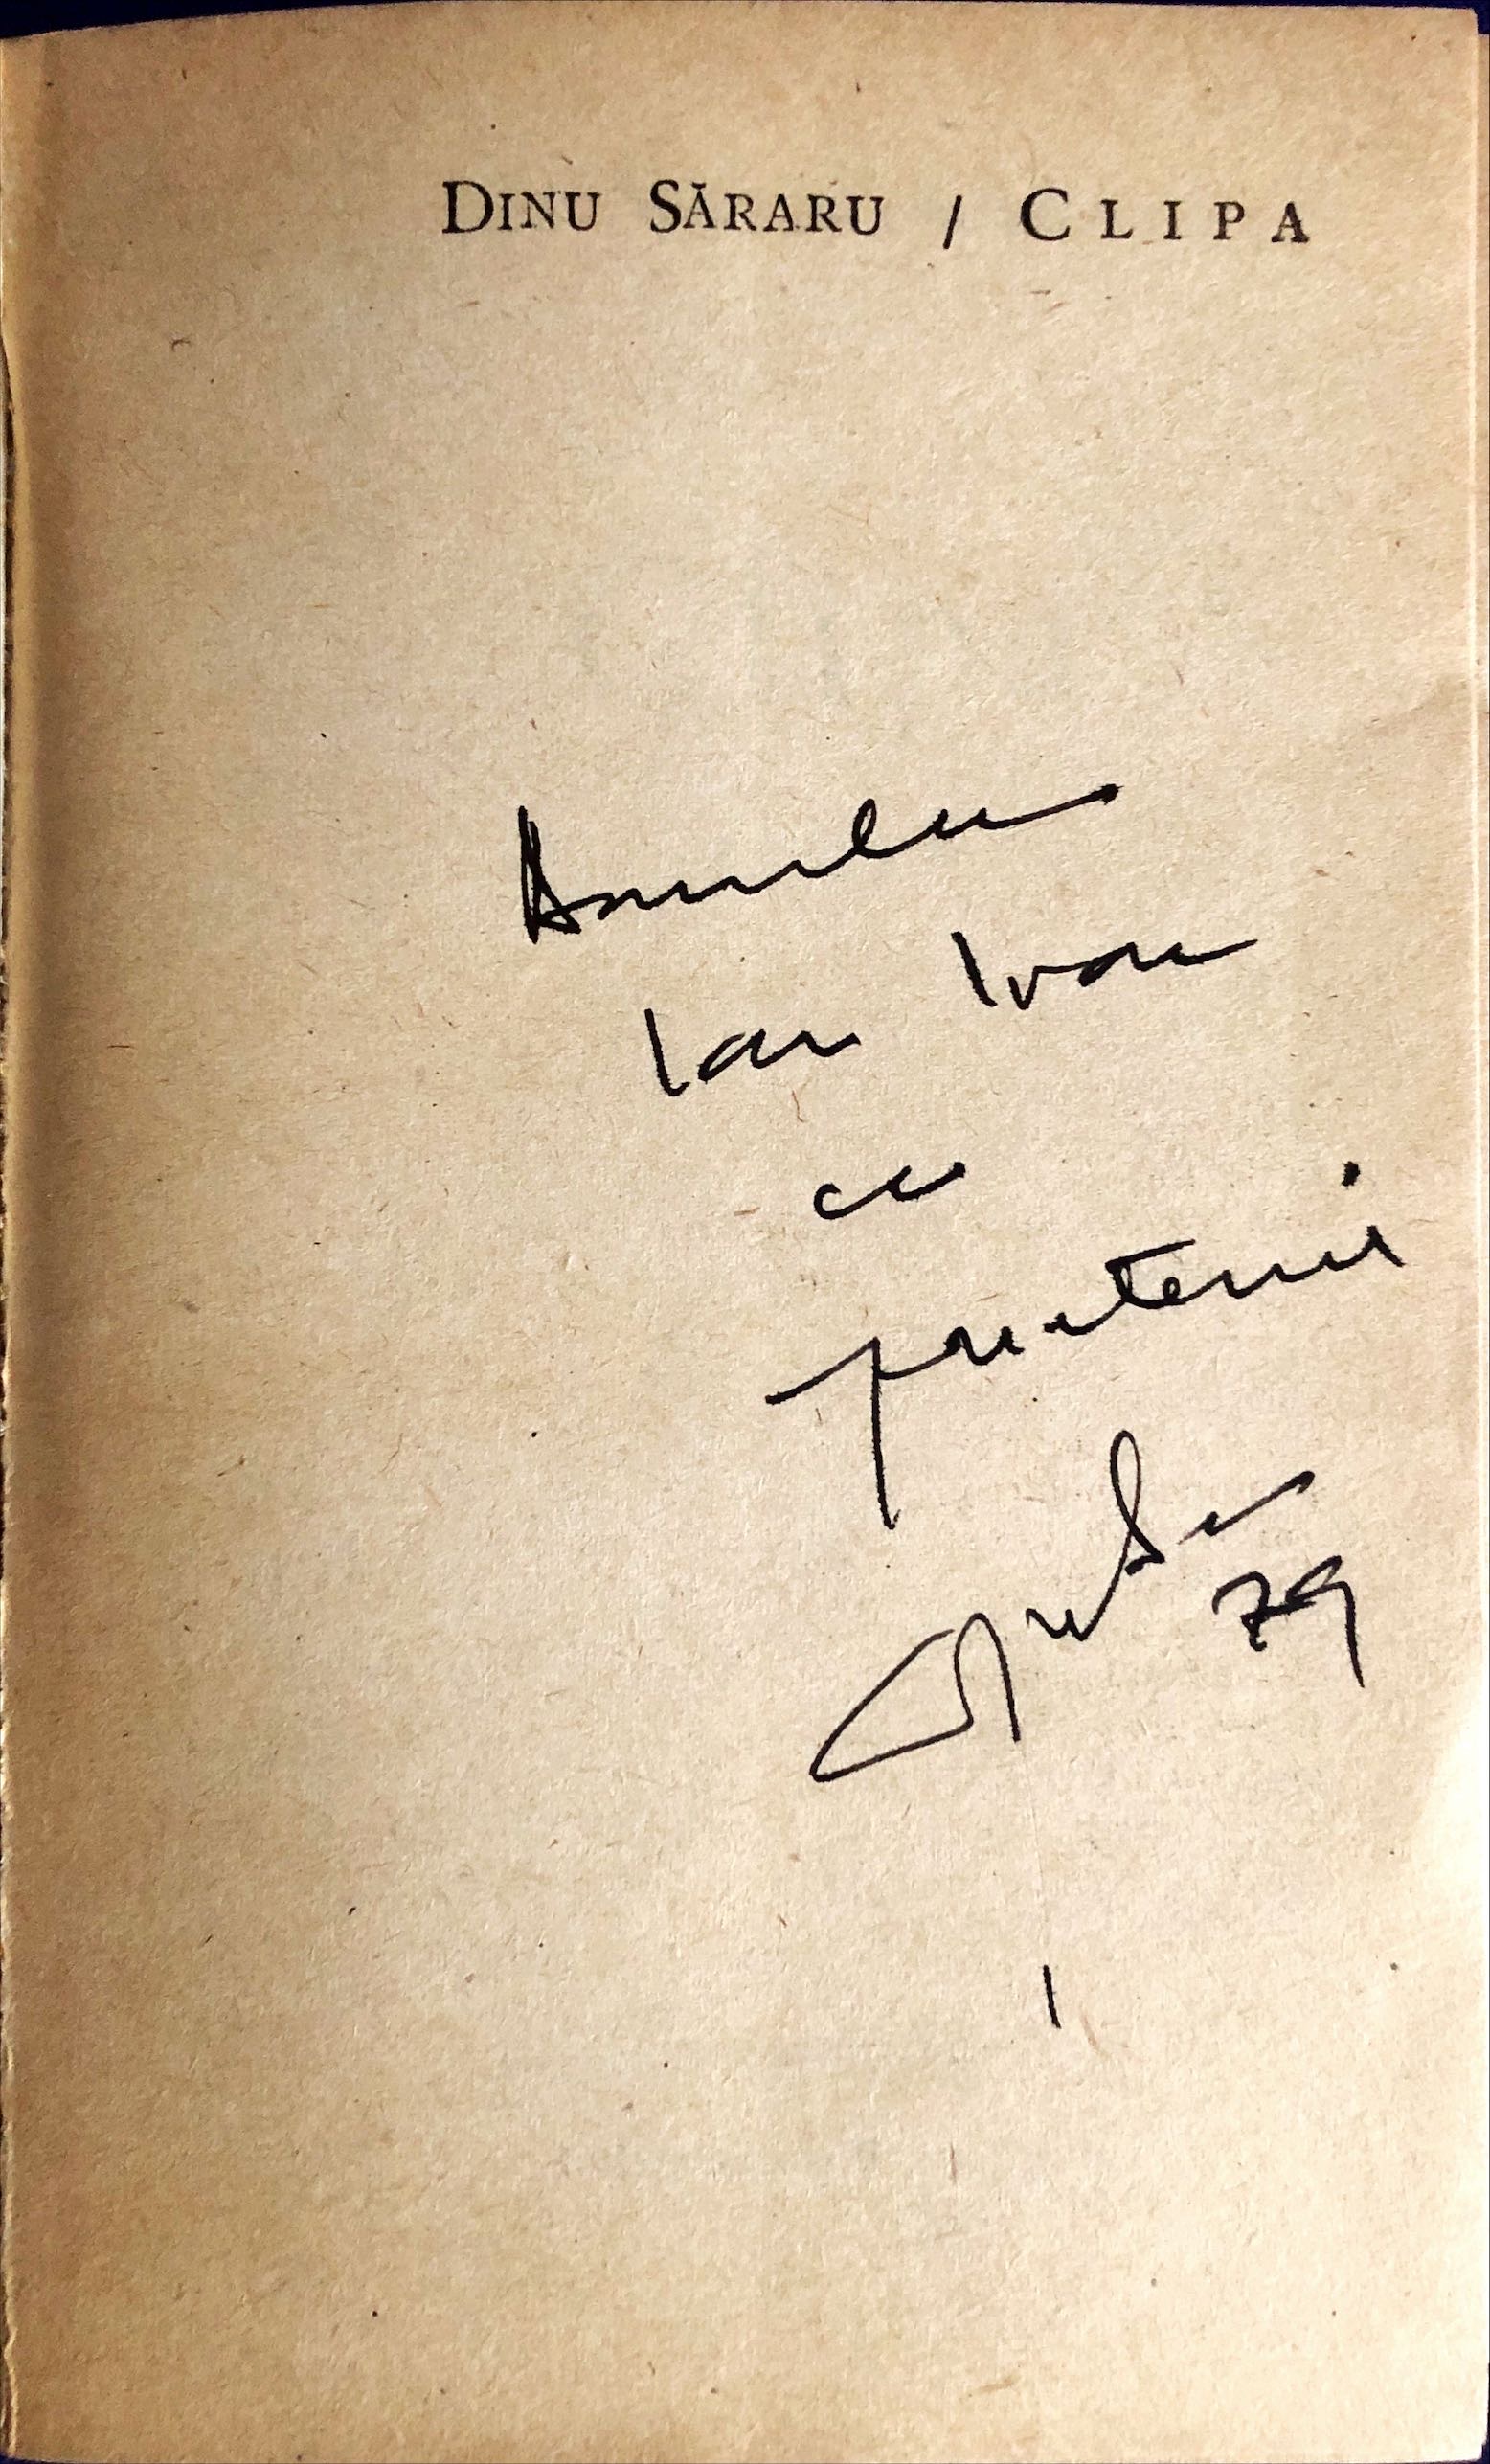 DINU SĂRARU / CLIPA
Domnului
Ion Ivan
cu
prietenie
79